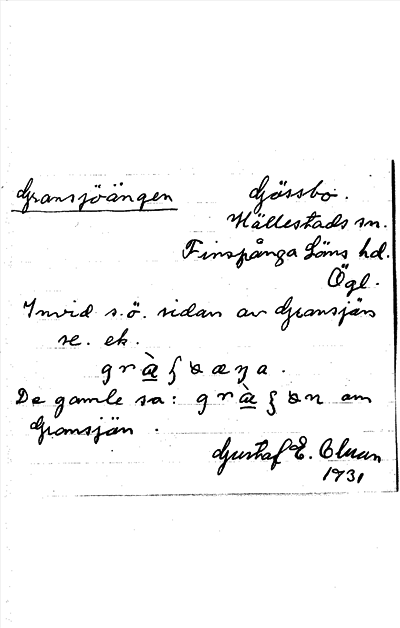 Gransjöängen
Gössbo.
Hällestads sn.
Finspånga Läns hd.
Ögl.
Invid s.ö. sidan av Gransjön
se. ek.
De gamle sa: om
Gransjön.
Gustaf E.
1931